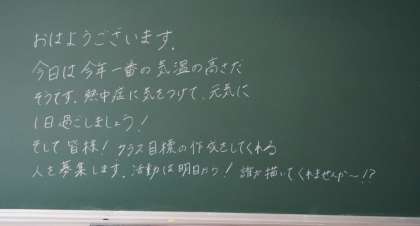 おはようございます.
今日は今年一番の気温の高さだ
そうです. 熱中症に気をつけて、元気に
1日過ごしましょう!
そして皆様! クラス目標の作成をしてくれる
人を募集します. 活動は明日から! 誰か描いてくれませんか〜!?